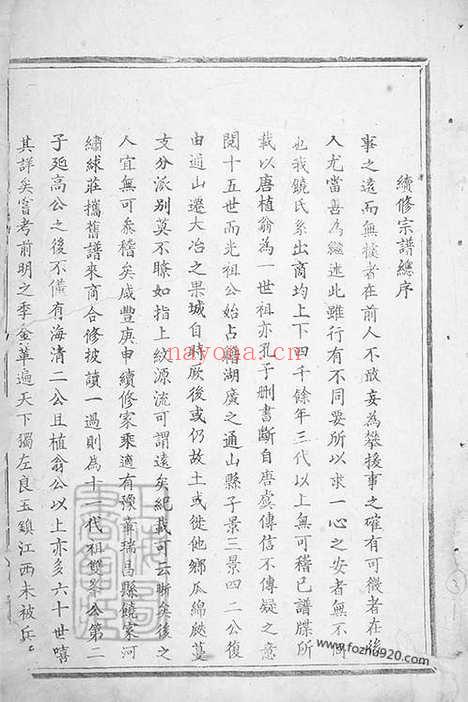 續修宗譜總序
事之遠而無據者在前人不敢妄為攀援事之確有可徵者在後
人尤當善為繼述此雖行有不同要所以求一心之安者無不同
也我饒氏系出商均上下四千餘年三代以上無可稽已譜牒所
載以唐植翁為一世祖亦孔子刪書斷自唐虞傳信不傳疑之意
閱十五世而光祖公始占籍湖廣之通山縣子景三景四二公復
由通山遷大冶之果城自時厥後或仍故土或徙他鄉瓜綿瓞蔓
支分派別莫不瞭如指上紋源流可謂遠矣紀載可云晰矣後之
人宜無可忝稽矣咸豐庚申續修家乘適有豫章瑞昌縣饒家河
繡球莊攜舊譜來商合修披讀一過則為十一代祖雙峯公第二
子延高公之後不僅有海清二公且植翁公以上亦多六十世嘻
其詳矣嘗考前明之季金革遍天下獨左良玉鎮江西未被兵
nayona.cn
www.fozhu920.com